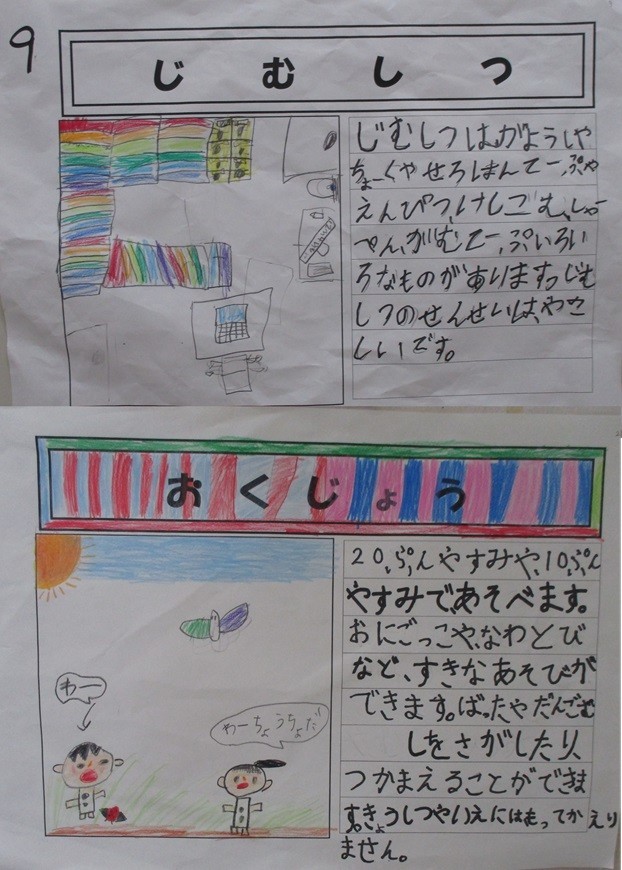 9
じむしつ
じむしつは、がようしや
ちょーくや せろはんてーぷや
えんぴつ、けしごむ、しゃー
ぺん、がむてーぷ、いろい
ろなものがあります。じむ
しつのせんせいは、やさ
しいです。
おくじょう
20ぷんやすみや、10ぷん
やすみであそべます。
おにごっこや、なわとび
など、すきなあそびが
できます。ばったや だんごむ
しをさがしたり、
つかまえることができま
す。きょうしつやいえにはもってかえり
ません。
わー
わーちょうちょだ